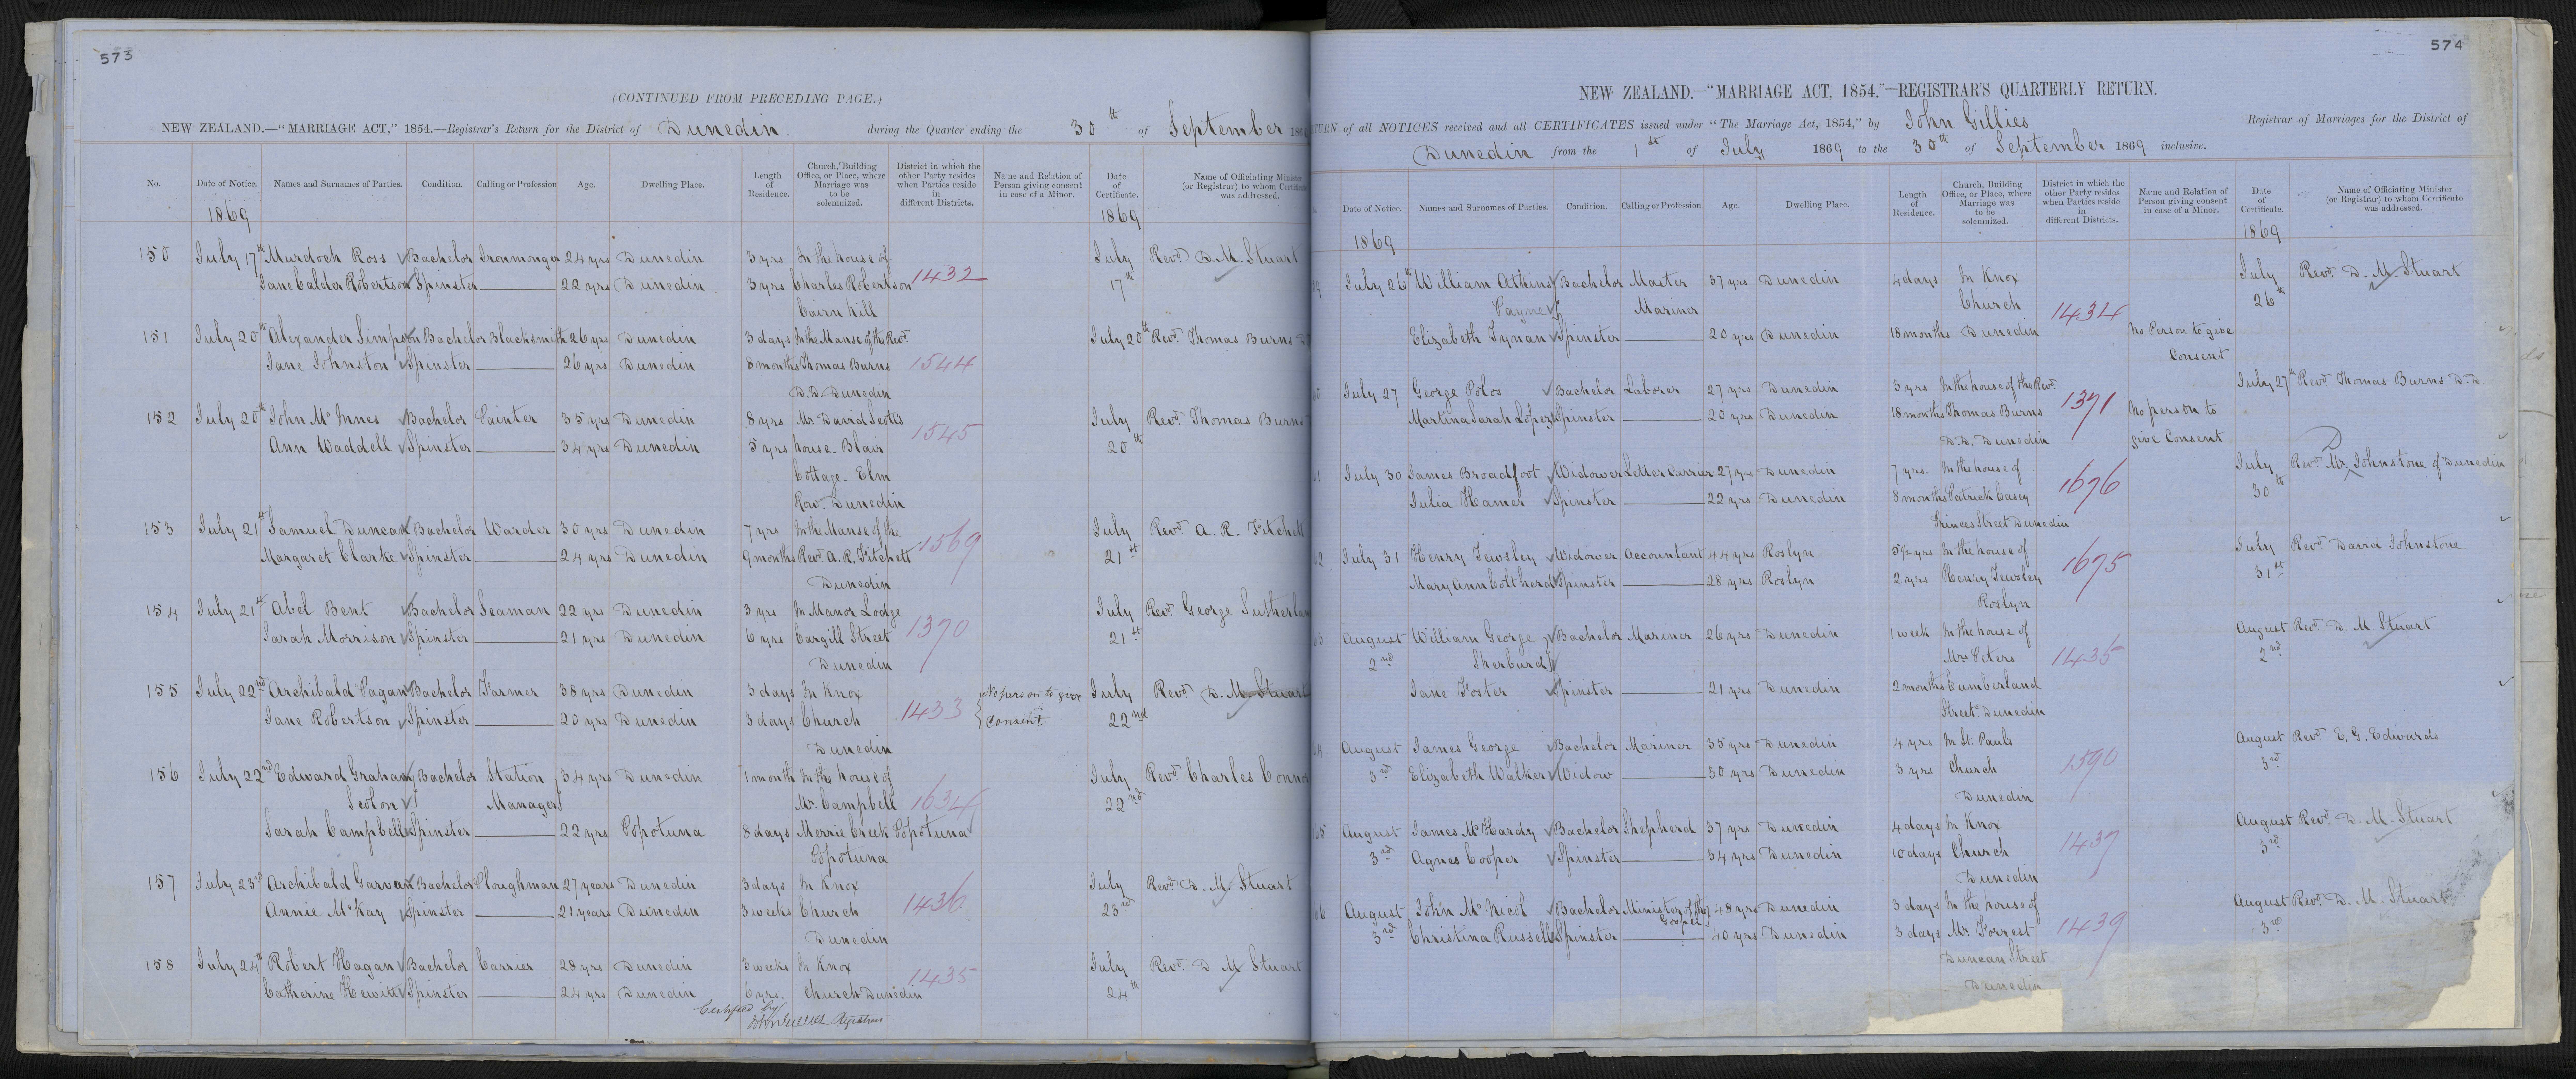 573
(CONTINUED FROM PRECEDING PAGE.)
NEW ZEALAND.—"MARRIAGE ACT," 1854.—Registrar's Return for the District of Dunedin. during the Quarter ending the 30th of September 186
No. Date of Notice. Names and Surnames of Parties. Condition. Calling or Profession Age. Dwelling Place. Length of Residence. Church, Building Office, or Place, where Marriage was to be solemnized. District in which the other Party resides when Parties reside in different Districts. Name and Relation of Person giving consent in case of a Minor. Date of Certificate. Name of Officiating Minister (or Registrar) to whom Certificate was addressed.
1869 1869
150 July 17th Murdoch Ross Bachelor Ironmonger 24 yrs Dunedin 3 yrs In the house of July Revd. D. M. Stuart
Jane Calder Robertson Spinster 22 yrs Dunedin 3 yrs Charles Robertson 1432 17th
Cairn Hill
151 July 20th Alexander Simpson Bachelor Blacksmith 26 yrs Dunedin 3 days In the Manse of the Revd. July 20th Revd. Thomas Burns
Jane Johnston Spinster 26 yrs Dunedin 8 months Thomas Burns 1544
D.D. Dunedin
152 July 20th John McInnes Bachelor Painter 35 yrs Dunedin 8 yrs Mr. David Scott's July Revd. Thomas Burns
Ann Waddell Spinster 34 yrs Dunedin 5 yrs house. Blair 1545 20th
Cottage. Elm
Row. Dunedin
153 July 21st Samuel Duncan Bachelor Warder 30 yrs Dunedin 7 yrs In the Manse of the July Revd. A. R. Fitchett
Margaret Clarke Spinster 24 yrs Dunedin 9 months Revd. A. R. Fitchett 1569 21st
Dunedin
154 July 21st Abel Bent Bachelor Seaman 22 yrs Dunedin 3 yrs In Manor Lodge July Revd. George Sutherla
Sarah Morrison Spinster 21 yrs Dunedin 6 yrs Cargill Street 1370 21st
Dunedin
155 July 22nd Archibald Pagan Bachelor Farmer 38 yrs Dunedin 3 days In Knox No person to give July Revd. D. M. Stuart
Jane Robertson Spinster 20 yrs Dunedin 3 days Church 1433 Consent. 22nd
Dunedin
156 July 22nd Edward Graham Bachelor Station 34 yrs Dunedin 1 month In the house of July Revd. Charles Conno
Scolon Manager Mr. Campbell 1634 22nd
Sarah Campbell Spinster 22 yrs Popotuna 8 days Merrie Creek Popotuna
Popotuna
157 July 23rd Archibald Garvan Bachelor Ploughman 27 years Dunedin 3 days In Knox July Revd. D. M. Stuart
Annie McKay Spinster 21 years Dunedin 3 weeks Church 1436 23rd
Dunedin
158 July 24th Robert Hagan Bachelor Carrier 28 yrs Dunedin 3 weeks In Knox July Revd. D M Stuart
Catherine Hewitt Spinster 24 yrs Dunedin 6 yrs. Church Dunedin 1435 24th
Certified by
John Gillies Registrar
574
NEW ZEALAND.—"MARRIAGE ACT, 1854."—REGISTRAR'S QUARTERLY RETURN.
TURN of all NOTICES received and all CERTIFICATES issued under "The Marriage Act, 1854," by John Gillies Registrar of Marriages for the District of
Dunedin from the 1st of July 1869 to the 30th of September 1869 inclusive.
Date of Notice. Names and Surnames of Parties. Condition. Calling or Profession Age. Dwelling Place. Length of Residence. Church, Building Office, or Place, where Marriage was to be solemnized. District in which the other Party resides when Parties reside in different Districts. Name and Relation of Person giving consent in case of a Minor. Date of Certificate. Name of Officiating Minister (or Registrar) to whom Certificate was addressed.
1869 1869
9 July 26th William Atkins Bachelor Master 37 yrs Dunedin 4 days In Knox July Revd. D. M. Stuart
Payne Mariner Church 1434 26th
Elizabeth Tynan Spinster 20 yrs Dunedin 18 months Dunedin No Person to give
Consent
0 July 27 George Polos Bachelor Laborer 27 yrs Dunedin 3 yrs In the house of the Revd. July 27th Revd. Thomas Burns D.D.
Martina Sarah Lopez Spinster 20 yrs Dunedin 18 months Thomas Burns 1371 No person to
D.D. Dunedin give Consent
61 July 30 James Broadfoot Widower Letter Carrier 27 yrs Dunedin 7 yrs. In the house of July Revd. Mr. D Johnstone of Dunedin
Julia Hamer Spinster 22 yrs Dunedin 8 months Patrick Casey 1676 30th
Princes Street Dunedin
62 July 31 Henry Tewsley Widower Accountant 44 yrs Roslyn 5½ yrs In the house of July Revd. David Johnstone
Mary Ann Coltherd Spinster 28 yrs Roslyn 2 yrs Henry Tewsley 1675 31st
Roslyn
63 August William George Bachelor Mariner 26 yrs Dunedin 1 week In the house of August Revd. D. M. Stuart
2nd Sherburd Mrs Peters 1435 2nd
Jane Foster Spinster 21 yrs Dunedin 2 months Cumberland
Street. Dunedin
64 August James George Bachelor Mariner 35 yrs Dunedin 4 yrs In St. Pauls August Revd. E. G. Edwards
3rd Elizabeth Walker Widow 30 yrs Dunedin 3 yrs Church 1590 3rd
Dunedin
65 August James McHardy Bachelor Shepherd 37 yrs Dunedin 4 days In Knox August Revd. D. M. Stuart
3rd Agnes Cooper Spinster 34 yrs Dunedin 10 days Church 1437 3rd
Dunedin
66 August John McNicol Bachelor Minister of the Gospel 48 yrs Dunedin 3 days In the house of August Revd. D. M. Stuart
3rd Christina Russell Spinster 40 yrs Dunedin 3 days Mr. Forrest 1439 3rd
Duncan Street
Dunedin